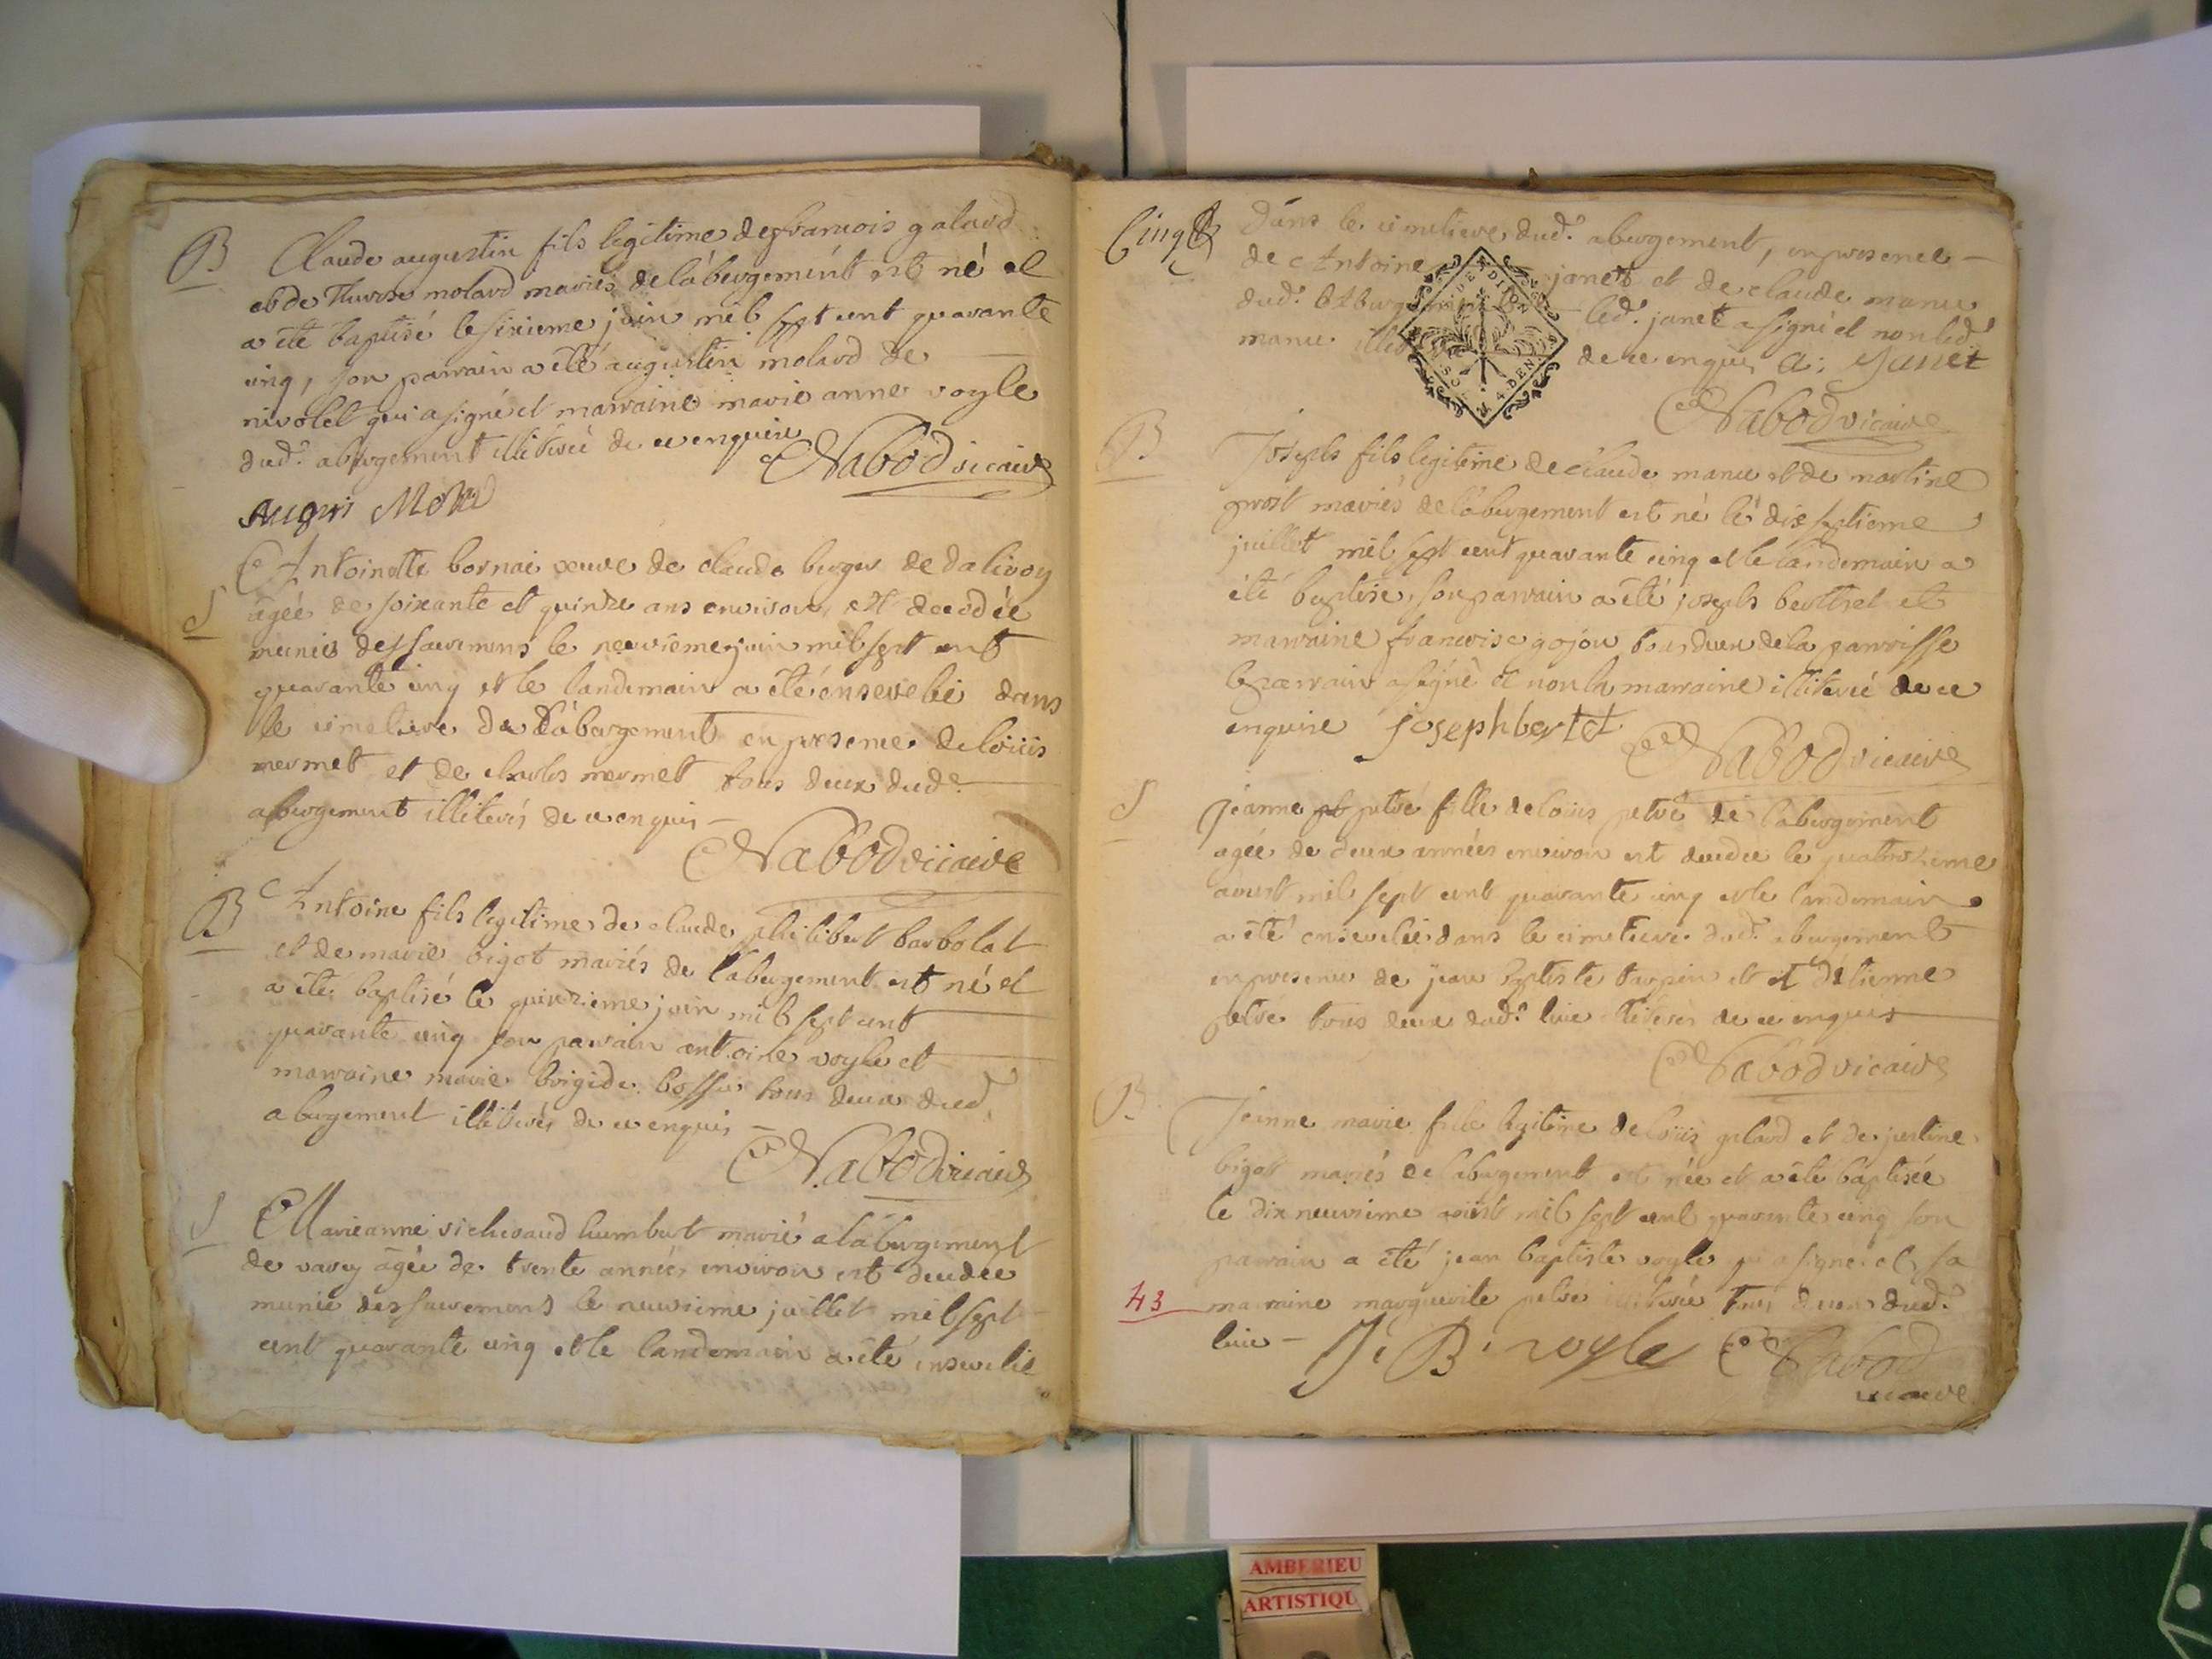 B Claude augustin fils legitime de francois galard
et de Therese molard mariés de labergement est né et
a été baptisé le sixieme juin mil sept cent quarante
cinq, son parrain a été augustin molard de
nivolet qui a signé et marraine marie anne royle
dud.^t abergement illiterée de ce enquise
Nabod vicaire
Augus Mola
S Antoinette bornai veuve de claude berger de dalivoy
agée de soixante et quinze ans environ, est decedée
munie des sacremens le neuvieme juin mil sept cent
quarante cinq et le landemain a été ensevelie dans
le cimetiere de Labergement en presence de loüis
mermet et de charles mermet tous deux dud.^t
abergement illiterés de ce enquis
Nabod vicaire
B Antoine fils legitime de claude philibert barbolat
et de marie bigot mariés de labergement est né et
a été baptisé le quinzieme juin mil sept cent
quarante cinq son parrain antoine royle et
marraine marie brigide bossu tous deux dud.^t
abergement illiterés de ce enquis
Nabod vicaire
S Marieanne humbert marié a labergement
de varey âgée de trente années environ est decedée
munie des sacremens le neuvieme juillet mil sept
cent quarante cinq et le landemain a été ensevelie
Cinq
dans le cimetiere dud.^t abergement, en presence
de Antoine janet et de claude manu
dud.^t abergement led.^t janet a signé et non led.^t
manu de ce enquis A: Janet
Nabod vicaire
B Joseph fils legitime de claude manu et de martine
prost mariés de labergement est né le dix septieme
juillet mil sept cent quarante cinq et le landemain a
été baptisé, son parrain a été joseph berthet et
marraine francoise gojon tous deux de la parroisse
le parrain a signé et non la marraine illiterée de ce
enquise joseph bertet
Nabod vicaire
S Jeanne petré fille de loüis petré de labergement
agée de deux années environ est decedée le quatorzieme
aoust mil sept cent quarante cinq et le landemain
a été ensevelie dans le cimetiere dud.^t abergement
en presence de jean baptiste et d'étienne
petré tous deux dud.^t lieu illiterés de ce enquis
Nabod vicaire
B Jeanne marie fille legitime de loüis galard et de justine
bigot mariés de labergement est née et a été baptisée
le dix neuvieme aoust mil sept cent quarante cinq son
parrain a été jean baptiste royle qui a signé et sa
43 marraine marguerite petré illiterée tous deux dud.^t
lieu J. B. royle Nabod
vicaire
AMBERIEU
ARTISTIQU